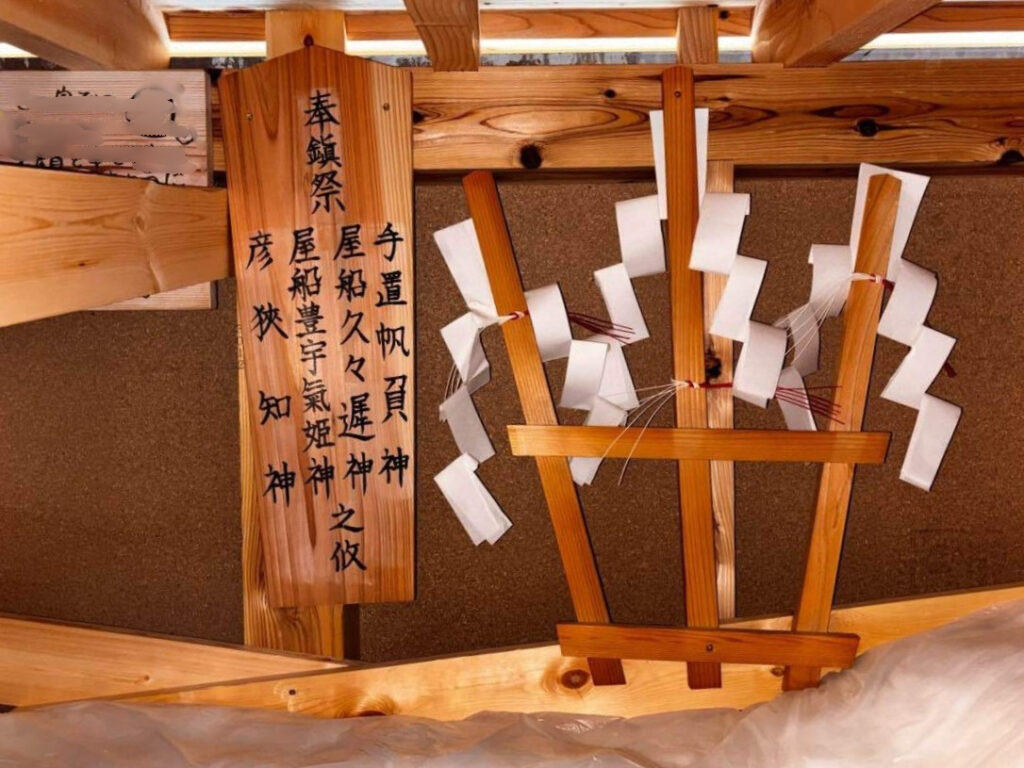 奉鎮祭
手置帆負神
屋船久々遲神
屋船豊宇氣姫神
彦狹知神
之攸